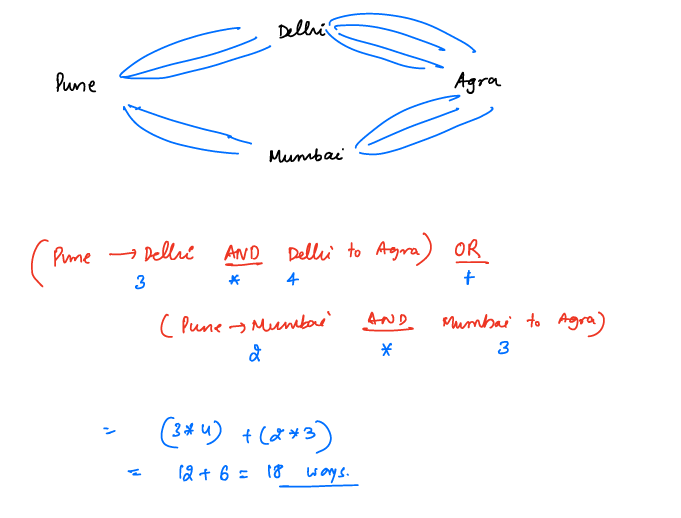 Delhi
Pune
Agra
Mumbai
(Pune → Delhi AND Delhi to Agra) OR
3 * 4 +
(Pune → Mumbai AND Mumbai to Agra)
2 * 3
= (3*4) + (2*3)
= 12 + 6 = 18 ways.